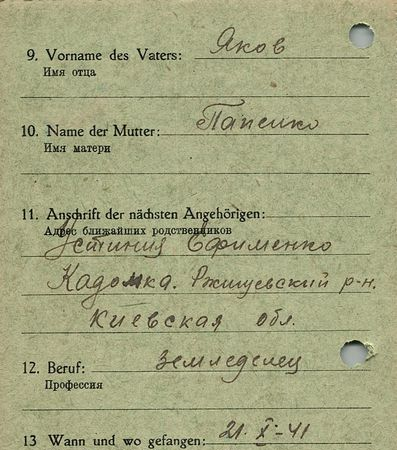 9. Vorname des Vaters: Яков
Имя отца
10. Name der Mutter: Папенко
Имя матери
11. Anschrift der nächsten Angehörigen:
Адрес ближайших родственников
Устиния Ефименко
Кадомка. Ржищевский р-н.
Киевская обл.
12. Beruf: Земледелец
Профессия
13 Wann und wo gefangen: 21. X-41